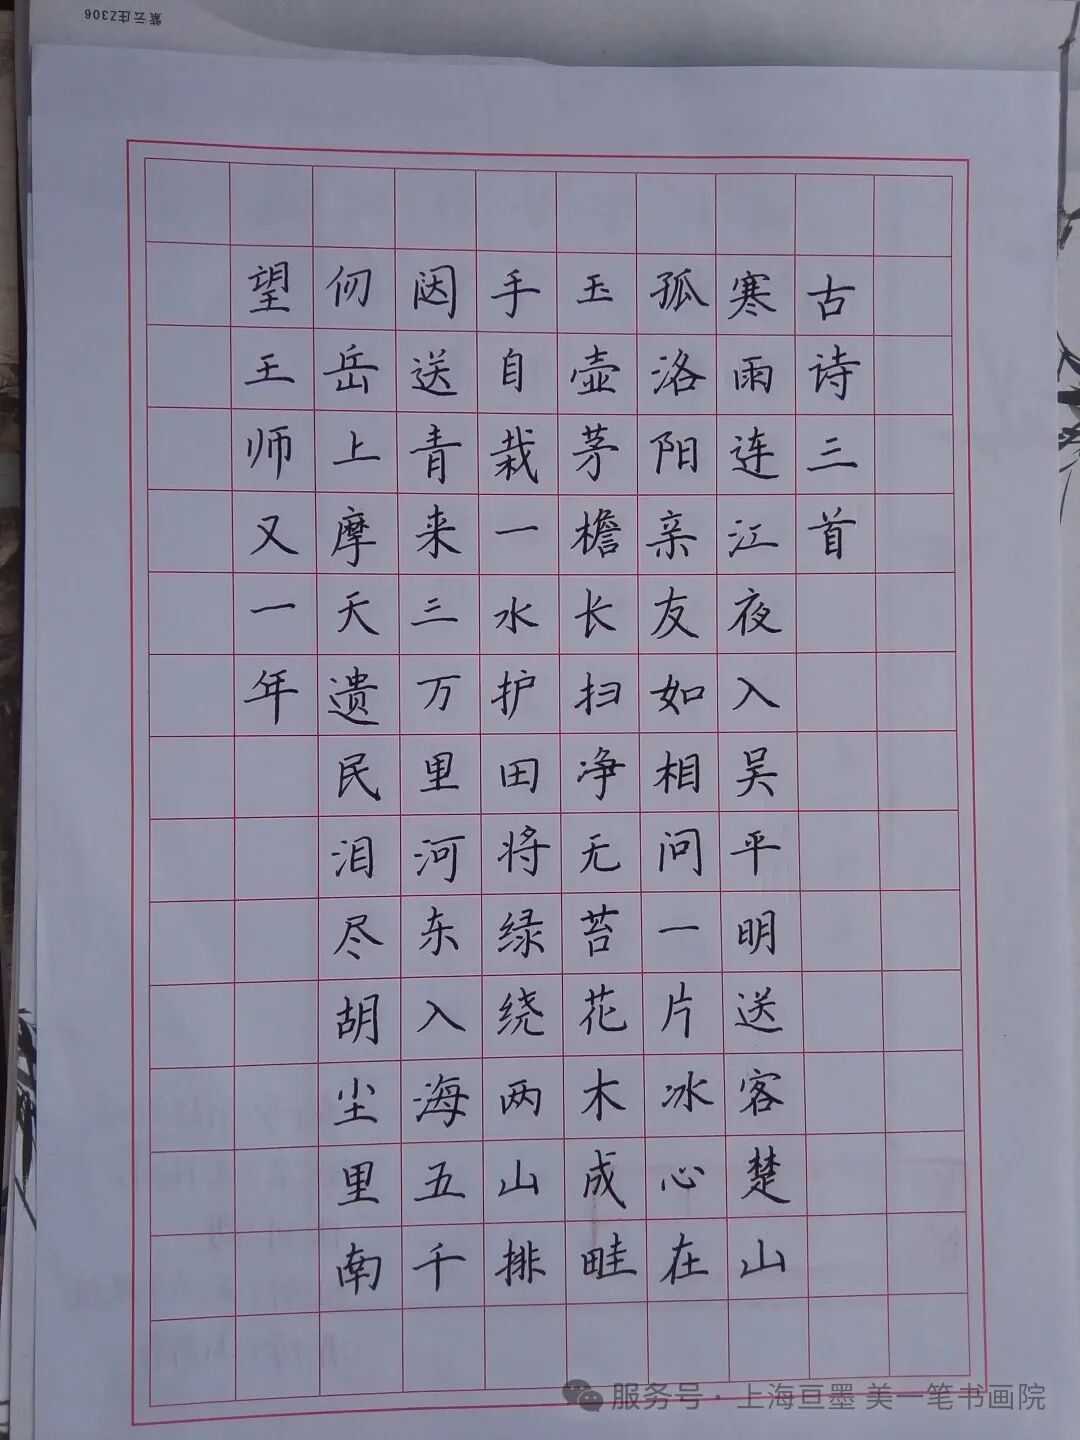 紫云庄Z306
古诗三首
寒雨连江夜入吴平明送客楚山
孤洛阳亲友如相问一片冰心在
玉壶茅檐长扫净无苔花木成畦
手自栽一水护田将绿绕两山排
闼送青来三万里河东入海五千
仞岳上摩天遗民泪尽胡尘里南
望王师又一年
服务号·上海亘墨 美一笔书画院